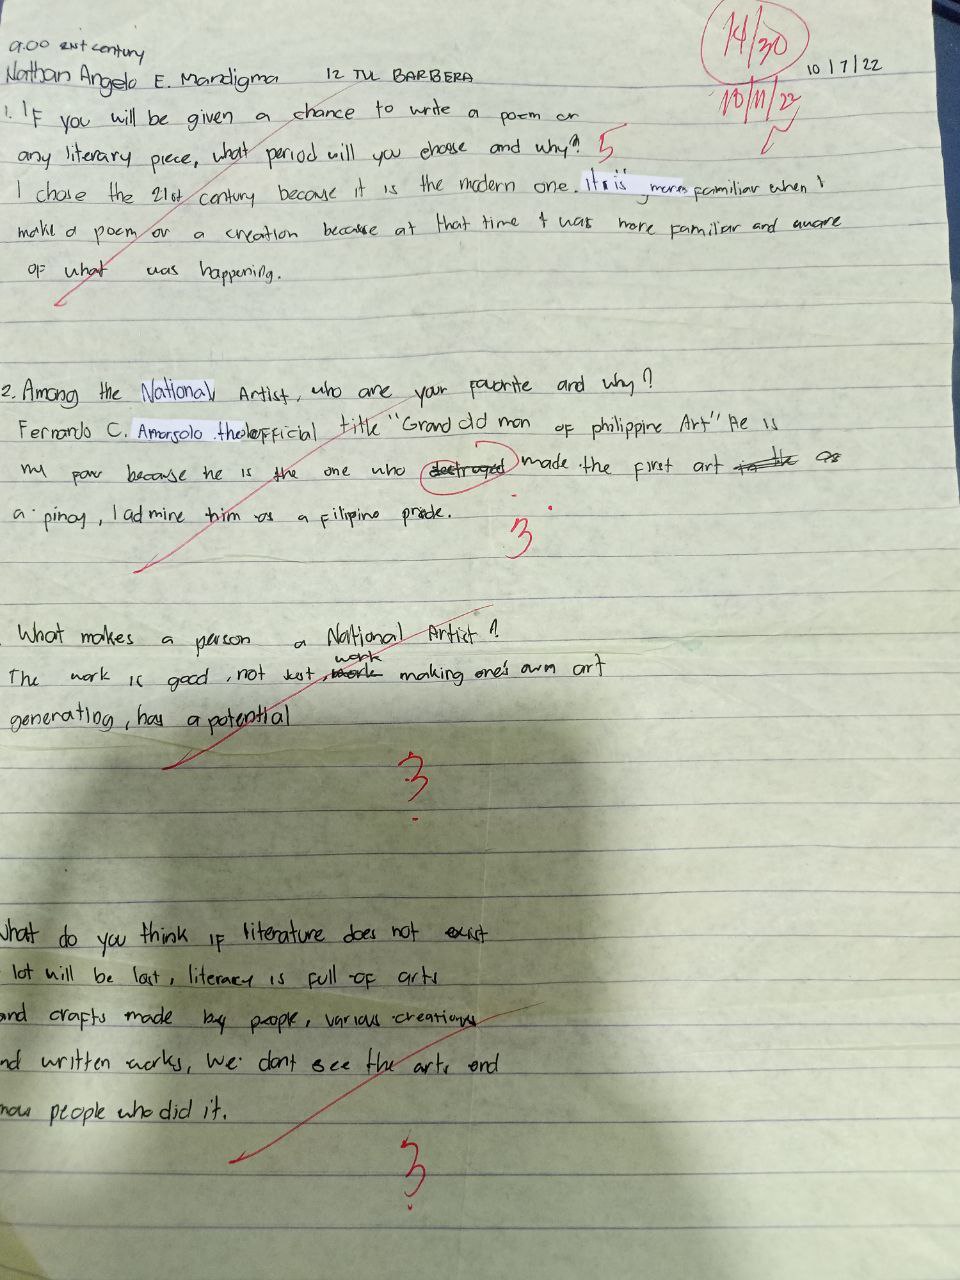 9:00 21st century
Nathan Angelo E. Mandigma 12 TVL BARBERA
14/30
10/7/22
10/11/22
1. IF you will be given a chance to write a poem or
any literary piece, what period will you choose and why? 5
I chose the 21st century because it is the modern one. it is more familiar when I
make a poem or a creation because at that time I was more familiar and aware
of what was happening.
2. Among the National Artist, who are your favorite and why?
Fernando C. Amorsolo the official title "Grand old man of philippine Art" He is
my fav because he is the one who destroyed made the first art as
a pinoy, I admire him as a filipino pride.
3
What makes a person a National Artist?
work
The work is good, not just, work making one's own art
generating, has a potential
3
What do you think if literature does not exist
lot will be lost, literacy is full of arts
and crafts made by people, various creations
nd written works, We dont see the arts and
now people who did it.
3